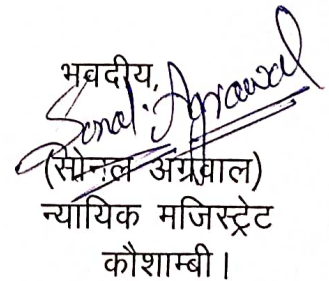 भवदीय,
Sonal Agrawal
(सोनल अग्रवाल)
न्यायिक मजिस्ट्रेट
कौशाम्बी।